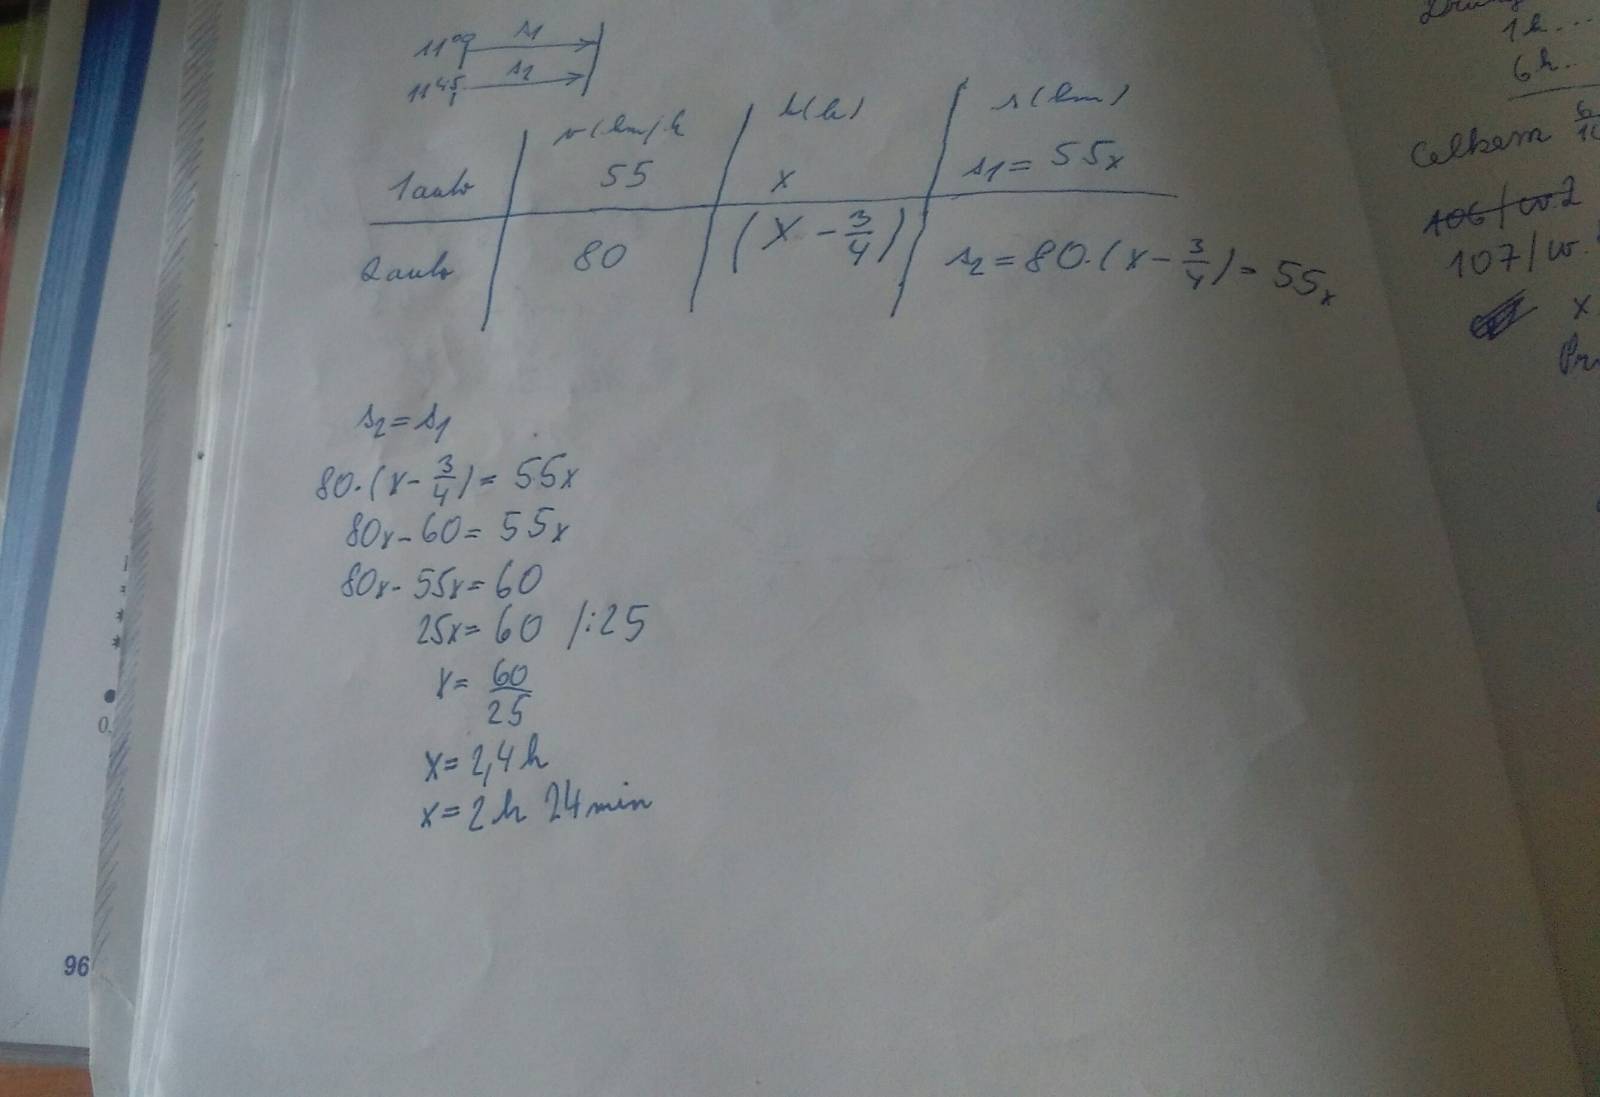 11⁰⁰ s₁
11⁴⁵ s₂
v (km/h t(h) s (km)
1 auto 55 x s₁ = 55x
2 auto 80 (x - 3/4) s₂ = 80.(x - 3/4) = 55x
s₂ = s₁
80.(x - 3/4) = 55x
80x - 60 = 55x
80x - 55x = 60
25x = 60 /:25
x = 60/25
x = 2,4 h
x = 2 h 24 min
96
0,
1h...
6h..
Celkem
106/cv.2
107/cv.
x